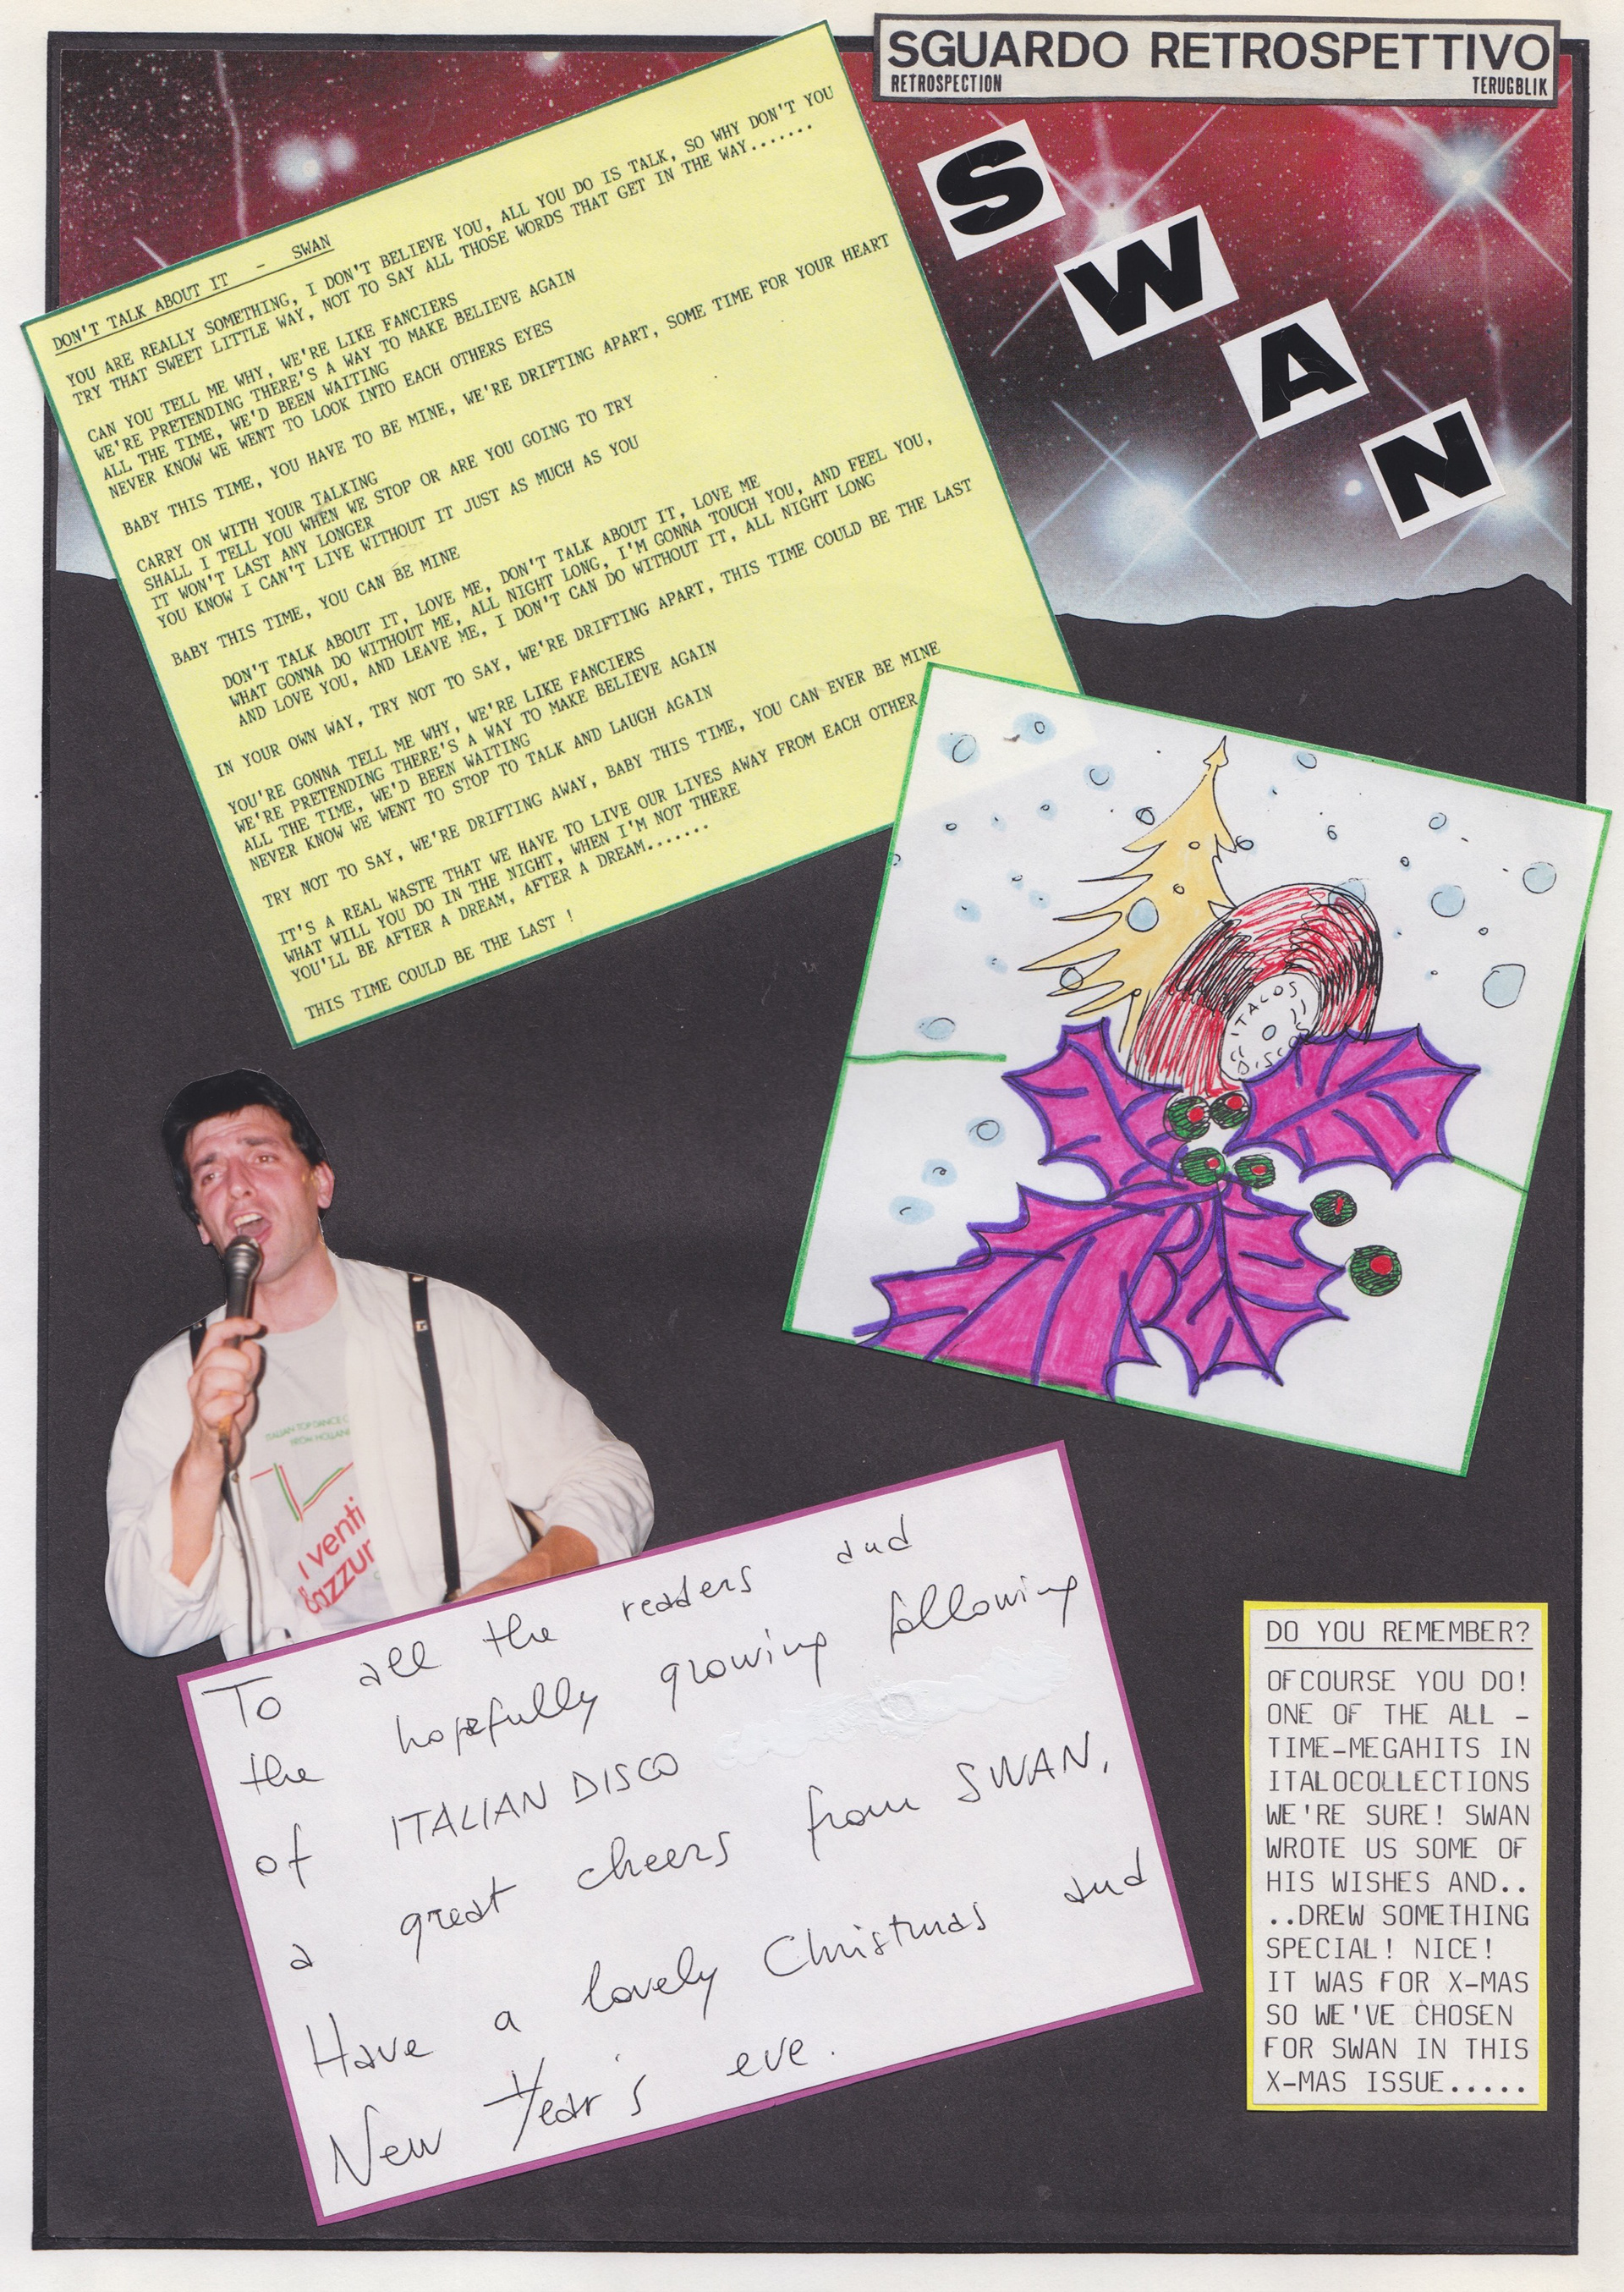 SGUARDO RETROSPETTIVO
RETROSPECTION TERUGBLIK
S
W
A
N
DON'T TALK ABOUT IT - SWAN
YOU ARE REALLY SOMETHING, I DON'T BELIEVE YOU, ALL YOU DO IS TALK, SO WHY DON'T YOU
TRY THAT SWEET LITTLE WAY, NOT TO SAY ALL THOSE WORDS THAT GET IN THE WAY.......
CAN YOU TELL ME WHY, WE'RE LIKE FANCIERS
WE'RE PRETENDING THERE'S A WAY TO MAKE BELIEVE AGAIN
ALL THE TIME, WE'D BEEN WAITING
NEVER KNOW WE WENT TO LOOK INTO EACH OTHERS EYES
BABY THIS TIME, YOU HAVE TO BE MINE, WE'RE DRIFTING APART, SOME TIME FOR YOUR HEART
CARRY ON WITH YOUR TALKING
SHALL I TELL YOU WHEN WE STOP OR ARE YOU GOING TO TRY
IT WON'T LAST ANY LONGER
YOU KNOW I CAN'T LIVE WITHOUT IT JUST AS MUCH AS YOU
BABY THIS TIME, YOU CAN BE MINE
DON'T TALK ABOUT IT, LOVE ME, DON'T TALK ABOUT IT, LOVE ME
WHAT GONNA DO WITHOUT ME, ALL NIGHT LONG, I'M GONNA TOUCH YOU, AND FEEL YOU,
AND LOVE YOU, AND LEAVE ME, I DON'T CAN DO WITHOUT IT, ALL NIGHT LONG
IN YOUR OWN WAY, TRY NOT TO SAY, WE'RE DRIFTING APART, THIS TIME COULD BE THE LAST
YOU'RE GONNA TELL ME WHY, WE'RE LIKE FANCIERS
WE'RE PRETENDING THERE'S A WAY TO MAKE BELIEVE AGAIN
ALL THE TIME, WE'D BEEN WAITING
NEVER KNOW WE WENT TO STOP TO TALK AND LAUGH AGAIN
TRY NOT TO SAY, WE'RE DRIFTING AWAY, BABY THIS TIME, YOU CAN EVER BE MINE
IT'S A REAL WASTE THAT WE HAVE TO LIVE OUR LIVES AWAY FROM EACH OTHER
WHAT WILL YOU DO IN THE NIGHT, WHEN I'M NOT THERE
YOU'LL BE AFTER A DREAM, AFTER A DREAM.......
THIS TIME COULD BE THE LAST !
ITALOS
DISCOS
ITALIAN TOP DANCE
FROM HOLLAND
I venti
d'azzur
To all the readers and
the hopefully growing following
of ITALIAN DISCO
a great cheers from SWAN.
Have a lovely Christmas and
New Year's eve.
DO YOU REMEMBER?
OFCOURSE YOU DO!
ONE OF THE ALL -
TIME-MEGAHITS IN
ITALOCOLLECTIONS
WE'RE SURE! SWAN
WROTE US SOME OF
HIS WISHES AND..
..DREW SOMETHING
SPECIAL! NICE!
IT WAS FOR X-MAS
SO WE'VE CHOSEN
FOR SWAN IN THIS
X-MAS ISSUE.....